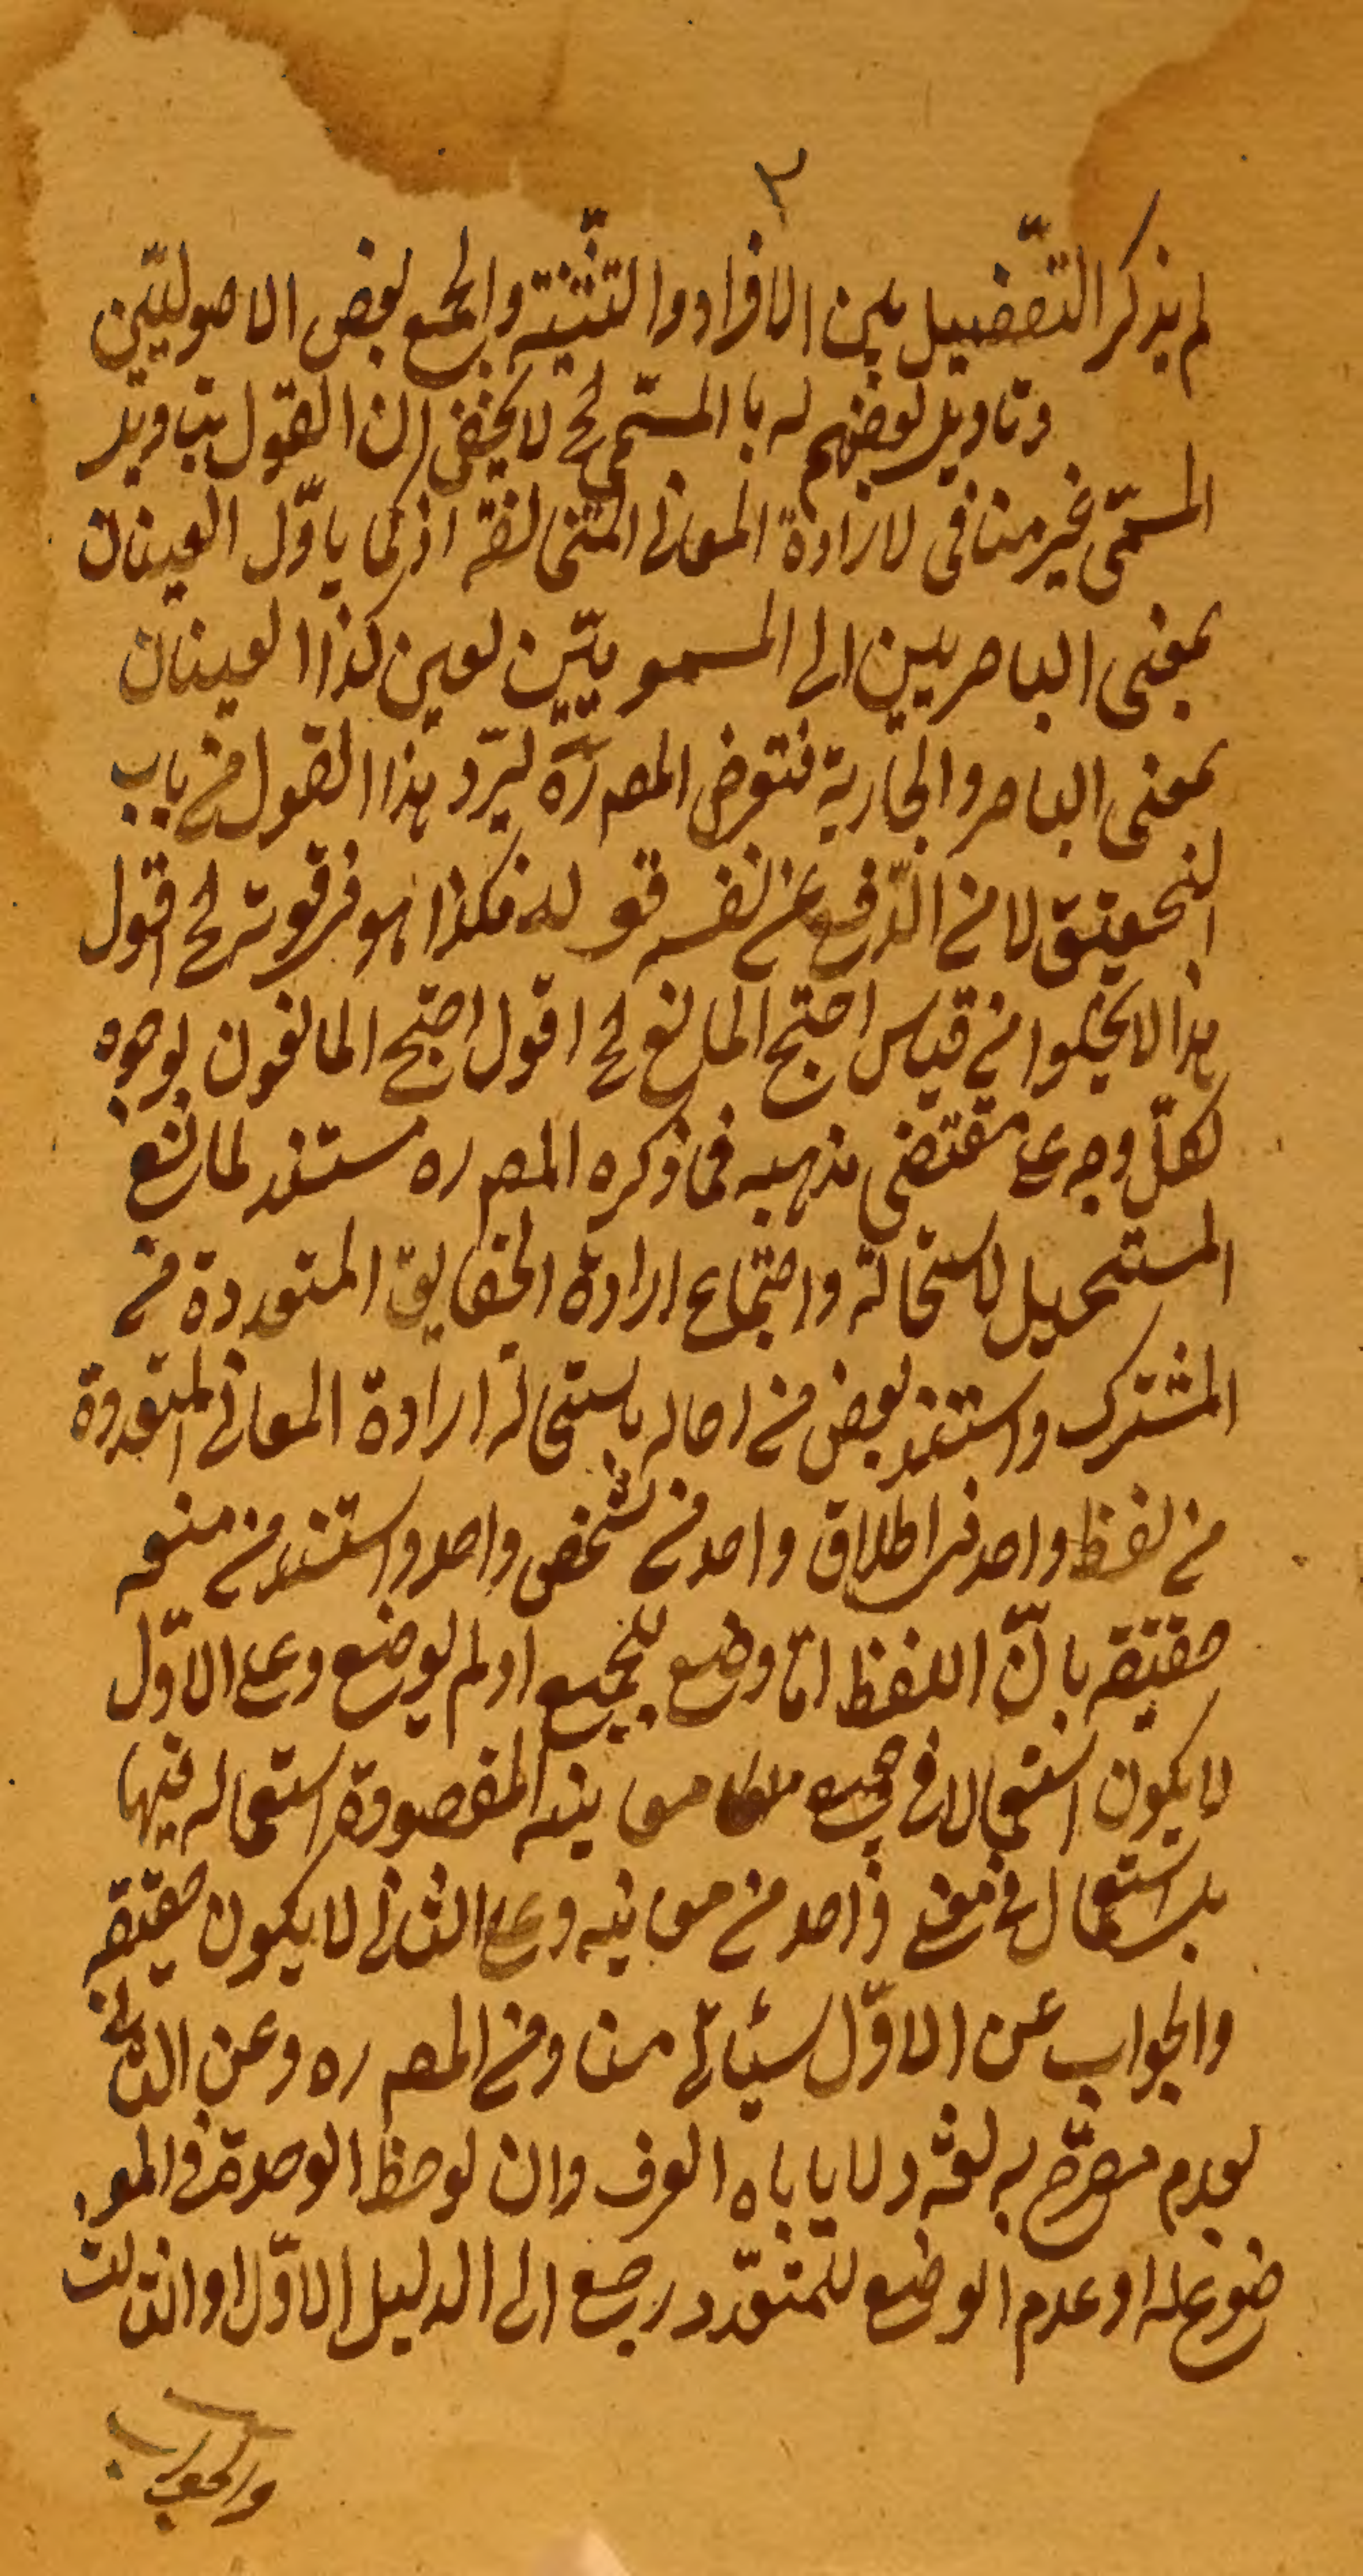 ٣
لم يذكر التفضيل بين الافراد والتثنيته والجمع لبعض الاصوليّين
وتاويل بعضهم له با المسّمى لخ لا يخفى ان القول بتاويل
المسمّى غير منافى لارادة المعانى المتخالفة اذ كما ياوّل العينان
بمعنى الباصريين الى المسمويتّين لعين كذا العينان
بمعنى الباصر والجارية فتعرض المصر ره ليرّد هذا القول من باب
التحقيق لا من الدّفع عن نفسه قوله فكذا هو فرقوته لخ اقول
هذا لا يخلوا من قياس احتج المانع لخ اقول احتج المانعون بوجوه
لكلّ وجه على مقتضى مذهبه فما ذكره المصر ره مستند لمانع
المستحيل لاستحالة واجتماع ارادة الحقايق المتعددة من
المشترك واستند بعض من احاله باستحالة ارادة المعانى المتعددة
من لفظ واحد فى اطلاق واحد من شخص واحد واستند من منعه
حقيقه بانّ اللفظ امّا وضع للجميع او لم يوضع وعلى الاوّل
لا يكون استعمالا فى جميع معانيه المقصودة استعماله فيها
بل استعمال فى معنى واحد من معانيه وعلى الثانى لا يكون حقيقه
والجواب عن الاوّل سيئاتى منا ومن المصر ره وعن الثانى
لعدم مصرّح به لغة ولا ياباه العرف وان لوحظ الوحدة فى المو
ضوع له او عدم الوضع للمتعدّد رجع الى الدليل الاوّل او الثالث
والجواب